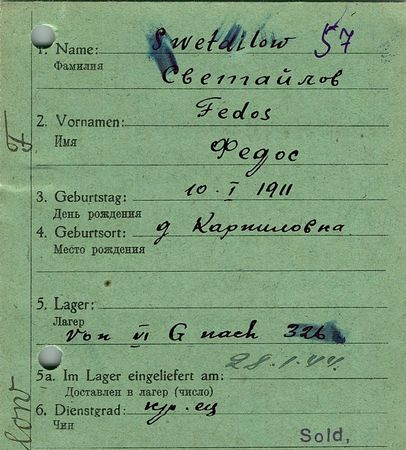 1. Name: Swetailow 57
Фамилия Светайлов
2. Vornamen: Fedos
Имя Федос
3. Geburtstag: 10. I 1911
День рождения
4. Geburtsort: д Карпиловка
Место рождения
5. Lager:
Лагер
von VI G nach 326
28.1.44.
5a. Im Lager eingeliefert am:
Доставлен в лагер (число)
6. Dienstgrad: кр. ец
Чин
Sold,
F
low